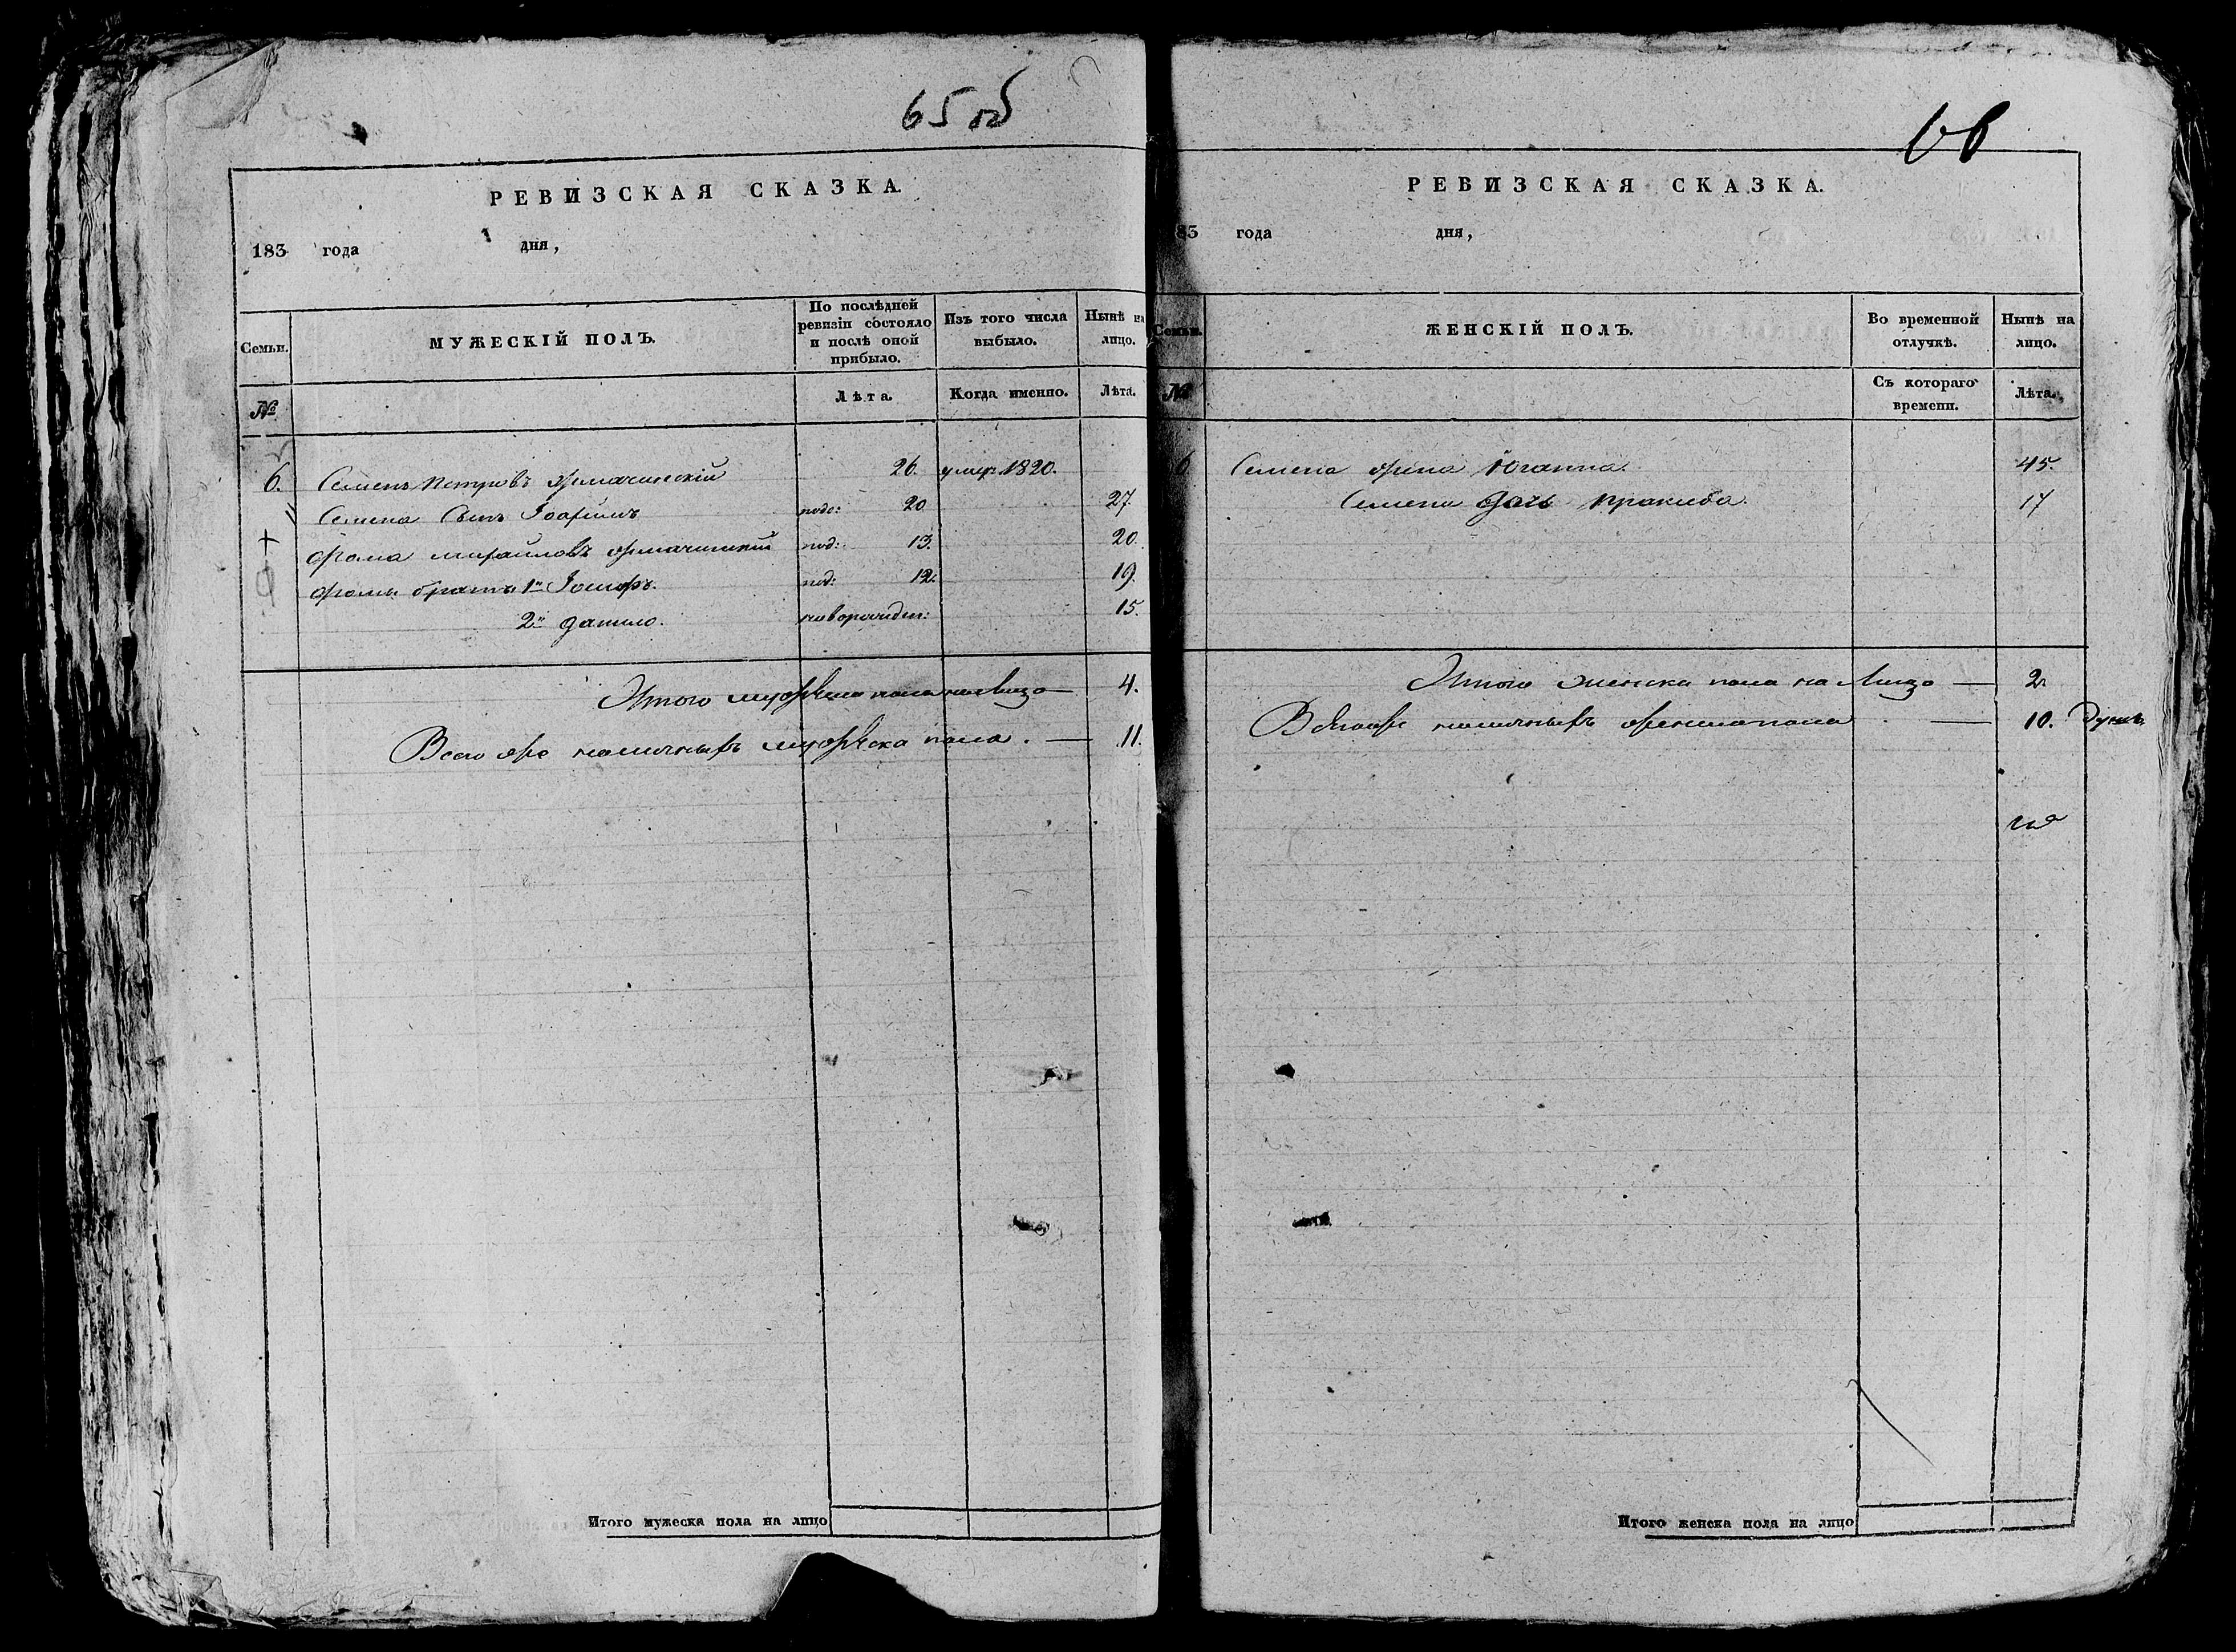 65 об
РЕВИЗСКАЯ СКАЗКА.
183 года дня,
Семьи.
МУЖЕСКІЙ ПОЛЪ.
По послѣдней ревизіи состояло и послѣ оной прибыло.
Изъ того числа выбыло.
Нынѣ на лицо.
№
Лѣта.
Когда именно.
Лѣта.
6. Семенъ Петровъ 26 умер. 1820.
Семена Сынъ Іоакимъ 20 27.
Фома Михайловъ под: 13. 20.
Фомы братья 1й Іосифъ. под: 12. 19.
2й Данило. новорожден: 15.
Итого мужеска пола на лицо — 4.
Всего же наличныхъ мужеска пола. — 11.
Итого мужеска пола на лицо
66
РЕВИЗСКАЯ СКАЗКА.
83 года дня,
Семьи.
ЖЕНСКІЙ ПОЛЪ.
Во временной отлучкѣ.
Нынѣ на лицо.
№
Съ котораго времени.
Лѣта.
6 Семена жена Іоганна. 45.
Семена дочь 17
Итого женска пола на лицо — 2
Всего же наличныхъ женска пола — 10. душъ
Итого женска пола на лицо